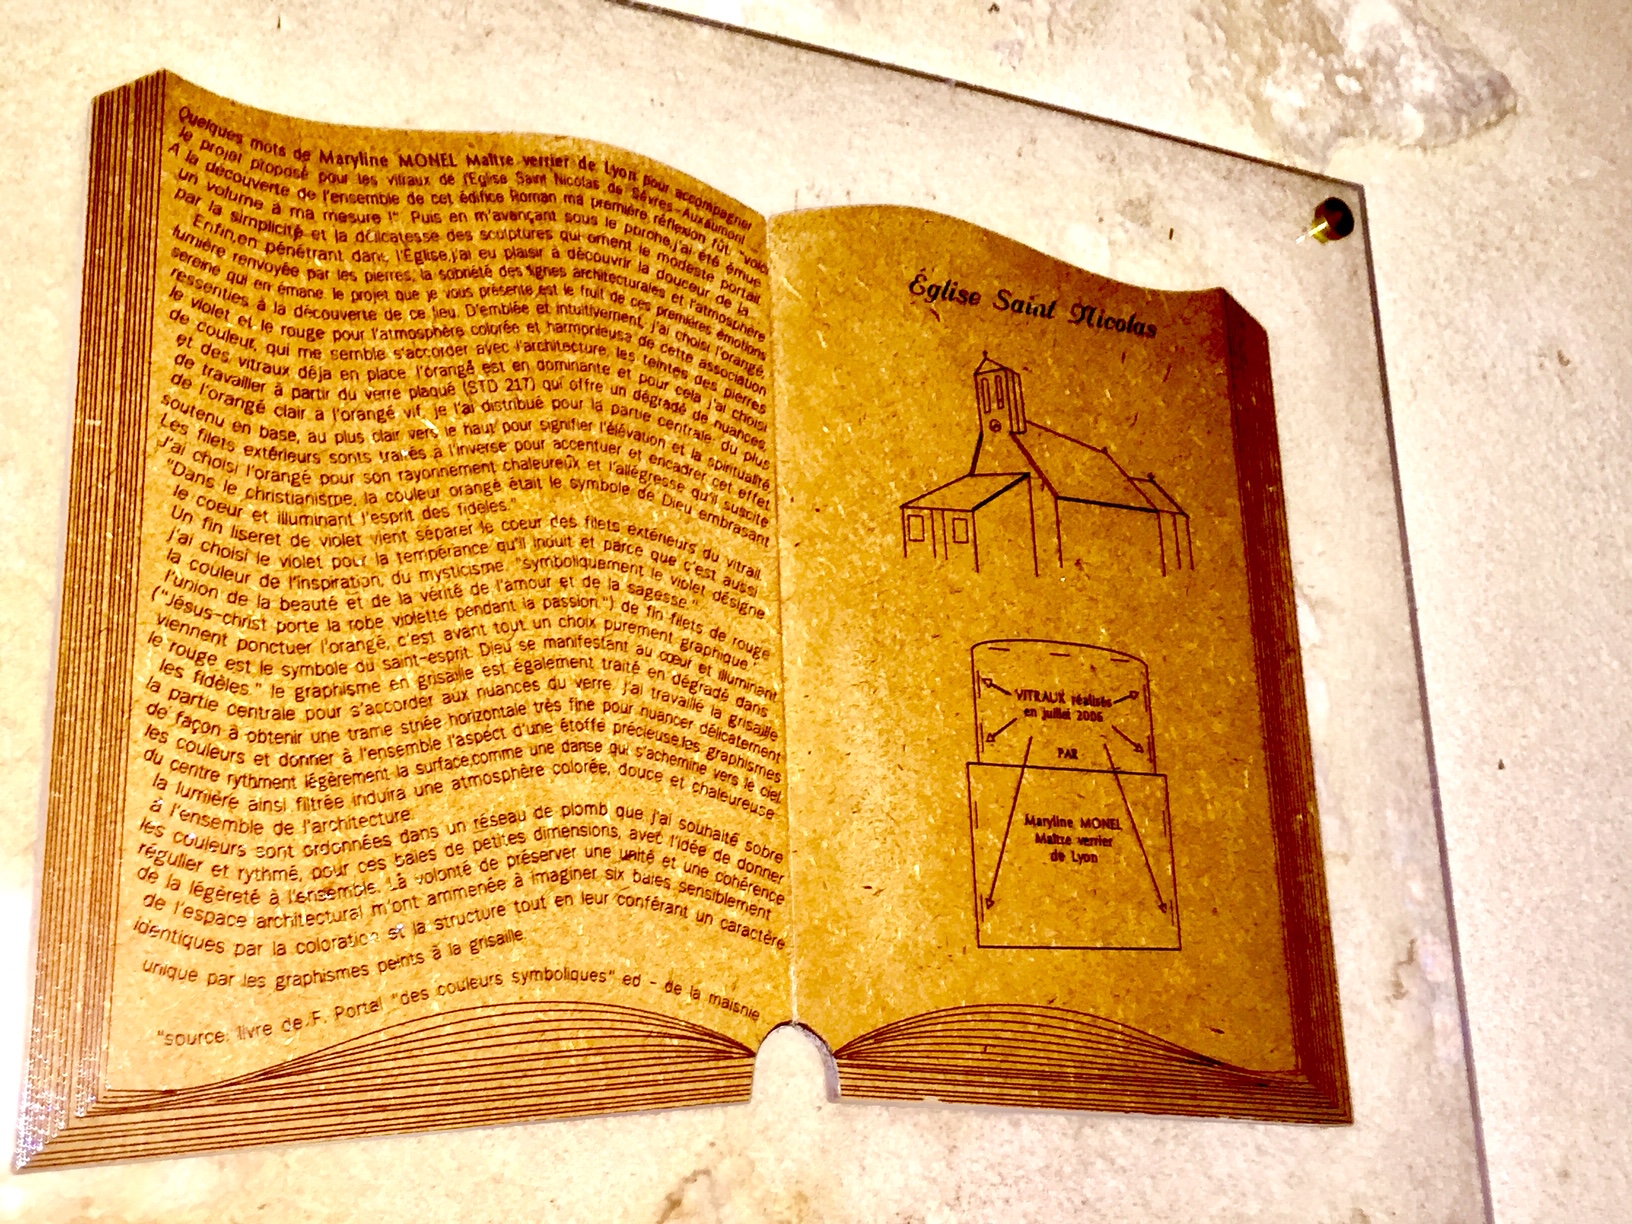 Quelques mots de Maryline MONEL Maître verrier de Lyon pour accompagner
le projet proposé pour les vitraux de l'Eglise Saint Nicolas de Sèvres-Auxaumont
A la découverte de l'ensemble de cet édifice Roman ma première réflexion fût, "voici
un volume à ma mesure !" Puis en m'avançant sous le porche,j'ai été émue
par la simplicité et la délicatesse des sculptures qui ornent le modeste portail.
Enfin,en pénétrant dans l'Église,j'ai eu plaisir à découvrir la douceur de la
lumière renvoyée par les pierres, la sobriété des lignes architecturales et l'atmosphère
sereine qui en émane. le projet que je vous présente est le fruit de ces premières émotions
ressenties à la découverte de ce lieu. D'emblée et intuitivement, j'ai choisi l'orangé,
le violet et le rouge pour l'atmosphère colorée et harmonieuse de cette association
de couleur, qui me semble s'accorder avec l'architecture, les teintes des pierres
et des vitraux déja en place. l'orangé est en dominante et pour cela j'ai choisi
de travailler à partir du verre plaqué (STD 217) qui offre un dégradé de nuances,
de l'orangé clair à l'orangé vif, je l'ai distribué pour la partie centrale: du plus
soutenu en base, au plus clair vers le haut pour signifier l'élévation et la spiritualité
Les filets extérieurs sonts traités à l'inverse pour accentuer et encadrer cet effet
J'ai choisi l'orangé pour son rayonnement chaleureux et l'allégresse qu'il suscite
"Dans le christianisme, la couleur orangé était le symbole de Dieu embrasant
le coeur et illuminant l'esprit des fidèles."
Un fin liseret de violet vient séparer le coeur des filets extérieurs du vitrail.
j'ai choisi le violet pour la tempérance qu'il induit et parce que c'est aussi
la couleur de l'inspiration, du mysticisme. "symboliquement le violet désigne
l'union de la beauté et de la vérité de l'amour et de la sagesse."
("Jésus-christ porte la robe violette pendant la passion.") de fin filets de rouge
viennent ponctuer l'orangé, c'est avant tout un choix purement graphique."
le rouge est le symbole du saint-esprit. Dieu se manifestant au cœur et illuminant
les fidèles." le graphisme en grisaille est également traité en dégradé dans
la partie centrale pour s'accorder aux nuances du verre. j'ai travaillé la grisaille
de façon à obtenir une trame striée horizontale très fine pour nuancer délicatement
les couleurs et donner à l'ensemble l'aspéct d'une étoffe précieuse.les graphismes
du centre rythment légèrement la surface,comme une danse qui s'achemine vers le ciel.
la lumière ainsi filtrée induira une atmosphère colorée, douce et chaleureuse
à l'ensemble de l'architecture.
les couleurs sont ordonnées dans un réseau de plomb que j'ai souhaité sobre
régulier et rythmé, pour ces baies de petites dimensions, avec l'idée de donner
de la légèreté à l'ensemble. Là volonté de préserver une unité et une cohérence
de l'espace architectural m'ont ammenée à imaginer six baies sensiblement
identiques par la coloration et la structure tout en leur conférant un caractère
unique par les graphismes peints à la grisaille.
"source: livre de F. Portal "des couleurs symboliques" ed - de la maisnie
Église Saint Nicolas
VITRAUX réalisés
en juillet 2006
PAR
Maryline MONEL
Maître verrier
de Lyon